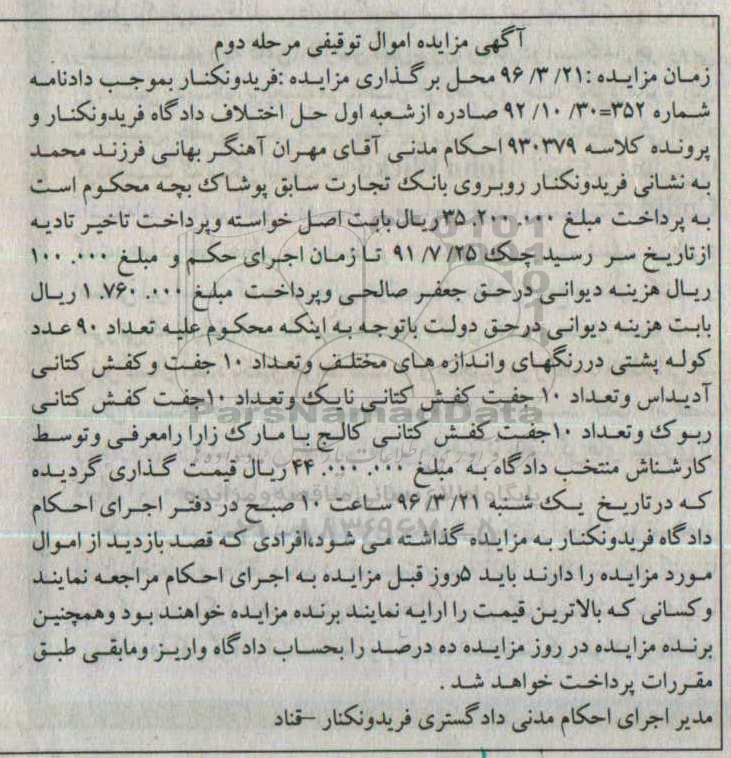 آگهی مزایده اموال توقیفی مرحله دوم
زمان مزایده :۲۱/ ۳/ ۹۶ محل برگذاری مزایده :فریدونکنار بموجب دادنامه
شماره ۳۵۲=۳۰/ ۱۰/ ۹۲ صادره ازشعبه اول حل اختلاف دادگاه فریدونکنار و
پرونده کلاسه ۹۳۰۳۷۹ احکام مدنی آقای مهران آهنگر بهانی فرزند محمد
به نشانی فریدونکنار روبروی بانک تجارت سابق پوشاک بچه محکوم است
به پرداخت مبلغ ۳۵.۲۰۰.۰۰۰ ریال بابت اصل خواسته وپرداخت تاخیر تادیه
ازتاریخ سر رسید چک ۲۵/ ۷/ ۹۱ تا زمان اجرای حکم و مبلغ ۱۰۰.۰۰۰
ریال هزینه دیوانی درحق جعفر صالحی وپرداخت مبلغ ۱.۷۶۰.۰۰۰ ریال
بابت هزینه دیوانی درحق دولت باتوجه به اینکه محکوم علیه تعداد ۹۰ عدد
کوله پشتی دررنگهای واندازه های مختلف وتعداد ۱۰ جفت وکفش کتانی
آدیداس وتعداد ۱۰ جفت کفش کتانی نایک وتعداد ۱۰جفت کفش کتانی
ریوک وتعداد ۱۰جفت کفش کتانی کالج با مارک زارا رامعرفی وتوسط
کارشناش منتخب دادگاه به مبلغ ۴۴.۰۰۰.۰۰۰ ریال قیمت گذاری گردیده
که درتاریخ یک شنبه ۲۱/ ۳/ ۹۶ ساعت ۱۰ صبح در دفتر اجرای احکام
دادگاه فریدونکنار به مزایده گذاشته می شود،افرادی که قصد بازدید از اموال
مورد مزایده را دارند باید ۵روز قبل مزایده به اجرای احکام مراجعه نمایند
وکسانی که بالاترین قیمت را ارایه نمایند برنده مزایده خواهند بود وهمچنین
برنده مزایده در روز مزایده ده درصد را بحساب دادگاه واریز ومابقی طبق
مقررات پرداخت خواهد شد .
مدیر اجرای احکام مدنی دادگستری فریدونکنار –قناد
ParsNamadData